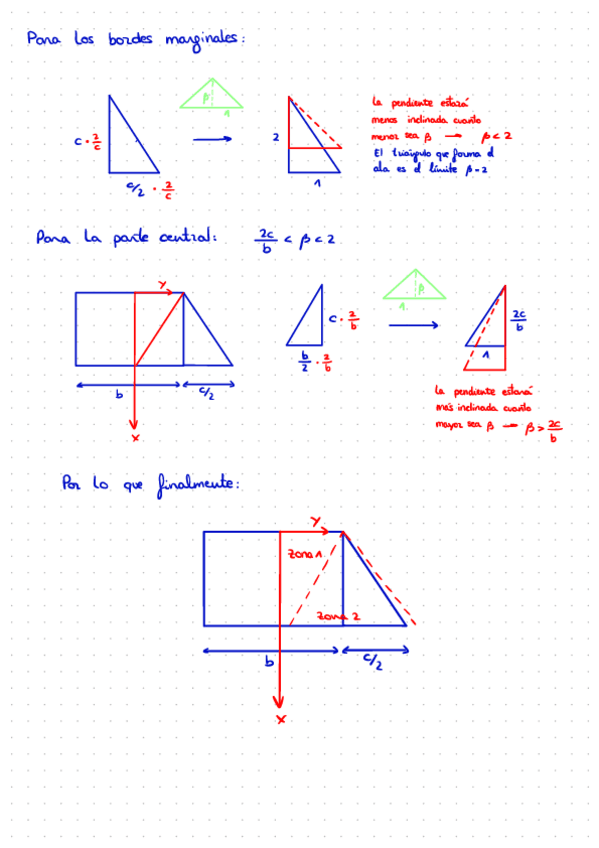 Para los bordes marginales:
β
1
c · 2/c
c/2 · 2/c
2
1
La pendiente estará
menos inclinada cuanto
menor sea β → β < 2
El triángulo que forma el
ala es el límite β = 2
Para la parte central: 2c/b < β < 2
y
b
c/2
x
c · 2/b
b/2 · 2/b
β
1
2c/b
1
La pendiente estará
más inclinada cuanto
mayor sea β → β > 2c/b
Por lo que finalmente:
y
zona 1
zona 2
b
c/2
x